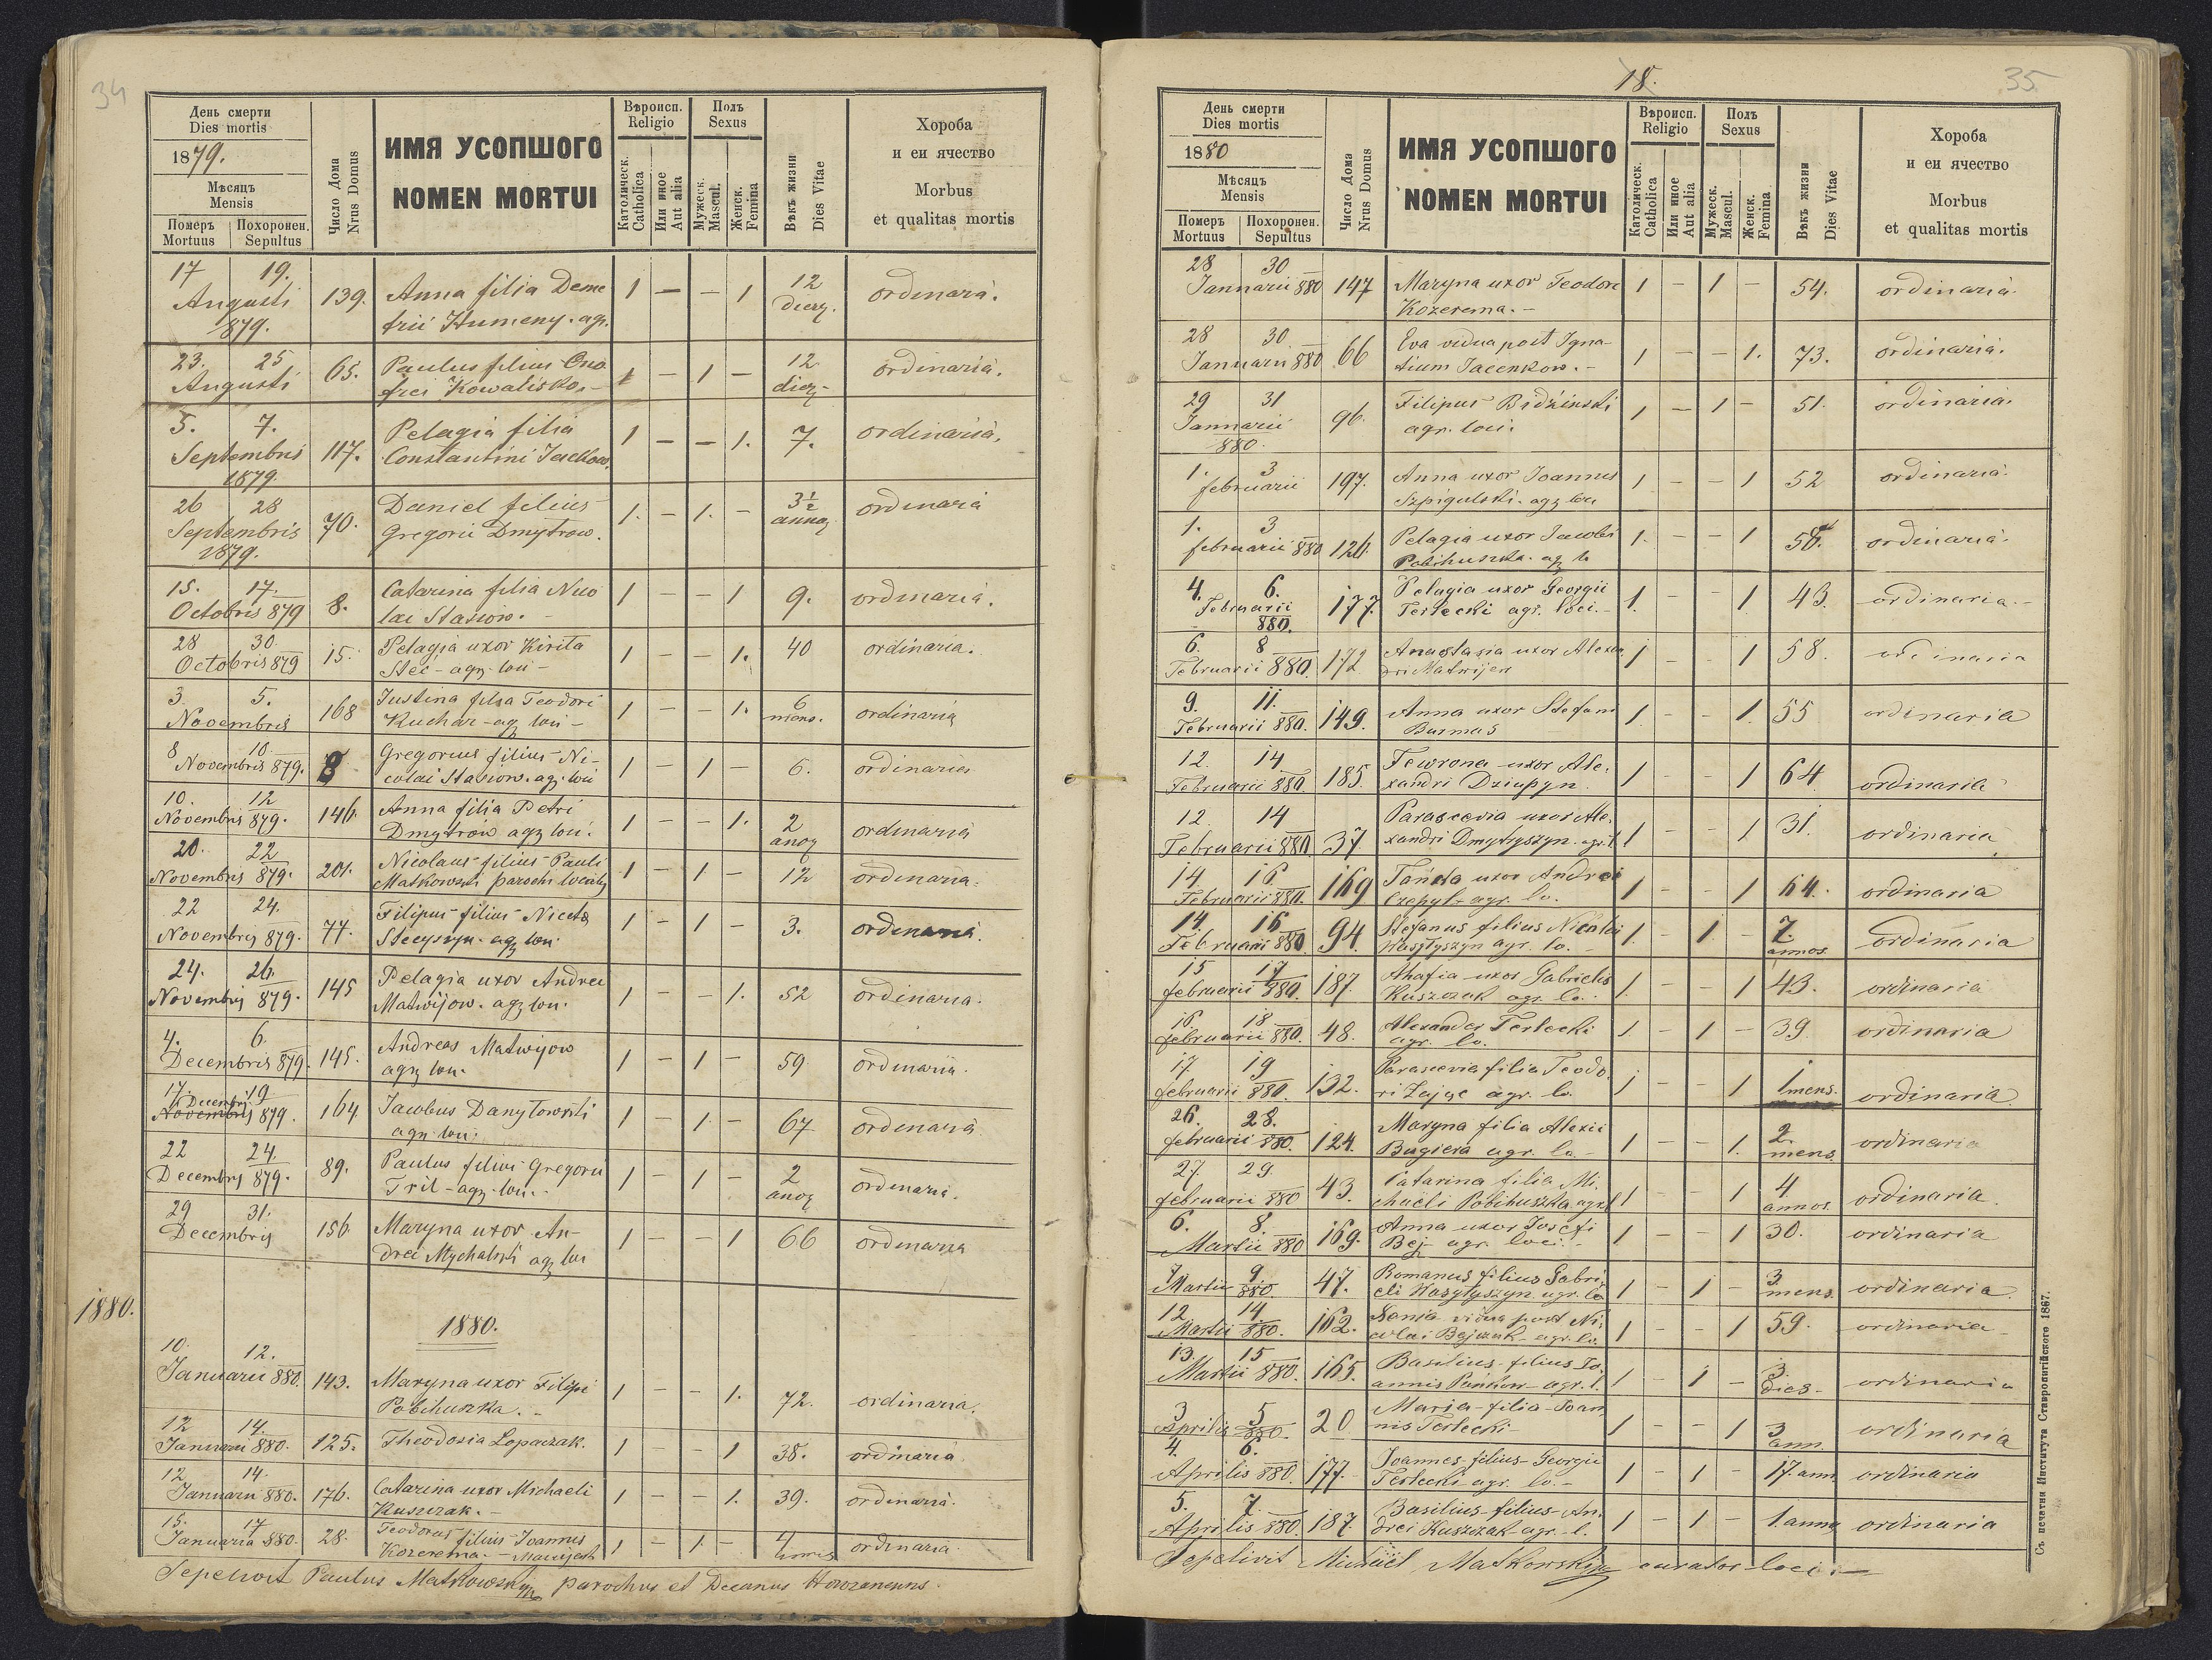 34
День смерти
Dies mortis
1879.
Мѣсяцъ
Mensis
Померъ Похоронен.
Mortuus Sepultus
Число Дома
Nrus Domus
ИМЯ УСОПШОГО
NOMEN MORTUI
Вѣроисп.
Religio
Католическ.
Catholica
Или иное
Aut alia
Полъ
Sexus
Мужеск.
Mascul.
Женск.
Femina
Вѣкъ жизни
Dies Vitae
Хороба
и еи ячество
Morbus
et qualitas mortis
17 19. Augusti 879. 139. Anna filia Deme 1 — — 1 12 ordinaria.
trii Humeny. agr.
23. 25 Augusti 65. Paulus filius Ono 1 — 1 — 12 ordinaria.
frei Kowalisko.
5. 7. Septembris 1879 117. Pelagia filia 1 — — 1. 7. ordinaria.
Constantini Jackow.
26 28 Septembris 1879. 70. Daniel filius 1. — 1. — 3½ ordinaria
Gregorii Dmytrow.
15. 17. Octobris 879 8. Catarina filia Nico 1 — — 1 9. ordinaria.
lai Stasiow.
28 30 Octobris 879 15. Pelagia uxor Kirita 1 — — 1. 40 ordinaria.
Stec - agr. loci -
3. 5. Novembris 168 Justina filia Teodori 1 — — 1. 6 mens. ordinaria
Kuchar - agr. loci -
8 10. Novembris 879. 8 Gregorius filius Ni- 1 — 1 — 6. ordinaria
colai Stasiow. agr. loci
10. 12 Novembris 879. 146. Anna filia Petri 1 — — 1. 2 ordinaria
Dmytrow agr. loci.
20. 22 Novembris 879. 201. Nicolaus filius Pauli 1 — 1 — 12 ordinaria.
Matkowski parochi
22 24. Novembris 879. 77. Filipus filius Nicetae 1 — 1 — 3. ordinaria.
Stecyszyn. agr. loci.
24. 26. Novembris 879. 145 Pelagia uxor Andrei 1 — — 1. 52 ordinaria.
Matwijow. agr. loci.
4. 6. Decembris 879. 145. Andreas Matwijow 1 — 1 — 59. ordinaria.
agr. loci.
17. 19 Decembris Novembris 879. 164 Jacobus Danylowski 1 — 1 — 67 ordinaria
agr. loci.
22 24. Decembris 879. 89. Paulus filius Gregorii 1 — 1 — 2 ordinaria.
Tril - agr. loci.
29 31. Decembris 156. Maryna uxor An- 1 — — 1 66 ordinaria
drei Mychalski agr. loci
1880.
1880.
10. 12. Januarii 880. 143. Maryna uxor Filipi 1 — — 1. 72. ordinaria.
Pobihuszka.
12 14. Januarii 880. 125. Theodosia Lopaczak. 1 — — 1 38. ordinaria.
12 14. Januarii 880. 176. Catarina uxor Michaeli 1 — — 1. 39. ordinaria.
Kuszczak.
15. 17 Januaria 880. 28. Teodorus filius Joannis 1 — 1. — 4 ordinaria.
Kozerema.
Sepelivit Paulus Matkowski parochus et Decanus
18. 35
День смерти
Dies mortis
1880
Мѣсяцъ
Mensis
Померъ Похоронен.
Mortuus Sepultus
Число Дома
Nrus Domus
ИМЯ УСОПШОГО
NOMEN MORTUI
Вѣроисп.
Religio
Католическ.
Catholica
Или иное
Aut alia
Полъ
Sexus
Мужеск.
Mascul.
Женск.
Femina
Вѣкъ жизни
Dies Vitae
Хороба
и еи ячество
Morbus
et qualitas mortis
28 30 Januarii 880 147 Maryna uxor Teodori 1 — 1 — 54. ordinaria.
Kozerema. —
28 30 Januarii 880 66 Eva vidua post Igna- 1 — — 1. 73. ordinaria.
tium Jacenkow. —
29 31 Januarii 880. 96. Filipus Bidzinski 1 — 1 — 51. ordinaria.
agr. loci.
1. 3 februarii 197. Anna uxor Joannis 1 — — 1 52 ordinaria.
Szpigulski. agr. loci
1. 3 februarii 880 126. Pelagia uxor Jacobi 1. — — 1 ordinaria.
Pobihuszka. agr. lo
4. 6. Februarii 880. 177. Pelagia uxor Georgii 1. — — 1 43. ordinaria. —
Terlecki agr. loci. —
6. 8 Februarii 880. 172 Anastasia uxor Alexan 1 — — 1 58. ordinaria
dri Matwijow
9. 11. Februarii 880. 149. Anna uxor Stefani 1. — — 1. 55 ordinaria
Burmas
12. 14 Februarii 880. 185. Fewrona uxor Ale- 1 — — 1 64. ordinaria
xandri Dziupyn.
12. 14 Februarii 880. 37. Parascevia uxor Ale- 1 — — 1 31. ordinaria
xandri Dmytryszyn. agr. l.
14. 16. Februarii 880. 169 uxor Andrei 1 — — 1 64. ordinaria
Czepyl - agr. lo.
14. 16 Februarii 880. 94. Stefanus filius Nicolai 1. — 1. — 7. annos. ordinaria
Wasylyszyn agr. lo. —
15 17 februarii 880. 187. Ahafia uxor Gabrielis 1. — — 1 43. ordinaria
Kuszczak agr. lo.
16. 18. februarii 880. 48. Alexander Terlecki 1 — 1 — 39. ordinaria
agr. lo.
17 19 februarii 880. 132. Parascevia filia Teodo- 1 — — 1 1 mens. ordinaria.
ri Zając agr. lo.
26. 28. februarii 880. 124. Maryna filia Alexii 1 — — 1. 2 mens. ordinaria
Bugiera agr. lo —
27. 29. februarii 880 43. Catarina filia Mi- 1 — — 1 4 annos. ordinaria.
chaeli Pobihuszka agr. l
6. 8. Martii 880 169. Anna uxor Josefi 1 — — 1 30. ordinaria
Bej - agr. loci. —
7 9 Martii 880 47. Romanus filius Gabri- 1 — 1 — 3 mens. ordinaria.
eli Wasylyszyn agr. lo
12. 14 Martii 880. 162. vidua post Ni- 1 — — 1 59. ordinaria
colai Bejczak agr. lo.
13. 15 Martii 880. 165. Basilius filius Jo- 1 — 1 — 3 dies — ordinaria
annis Pańkow - agr. l.
3 5 Aprilis 880. 20 Maria - filia - Joan 1 — — 1 3 ann. ordinaria
nis Terlecki —
4. 6. Aprilis 880. 177. Joannes filius Georgii 1 — 1 — 17. ann ordinaria
Terlecki agr. lo. —
5. 7. Aprilis 880. 187. Basilius filius An- 1 — 1 — 1 anno ordinaria
drei Kuszczak agr. l.
Sepelivit Michael Matkowski curator loci
Съ печатни Института Ставропигійского 1867.